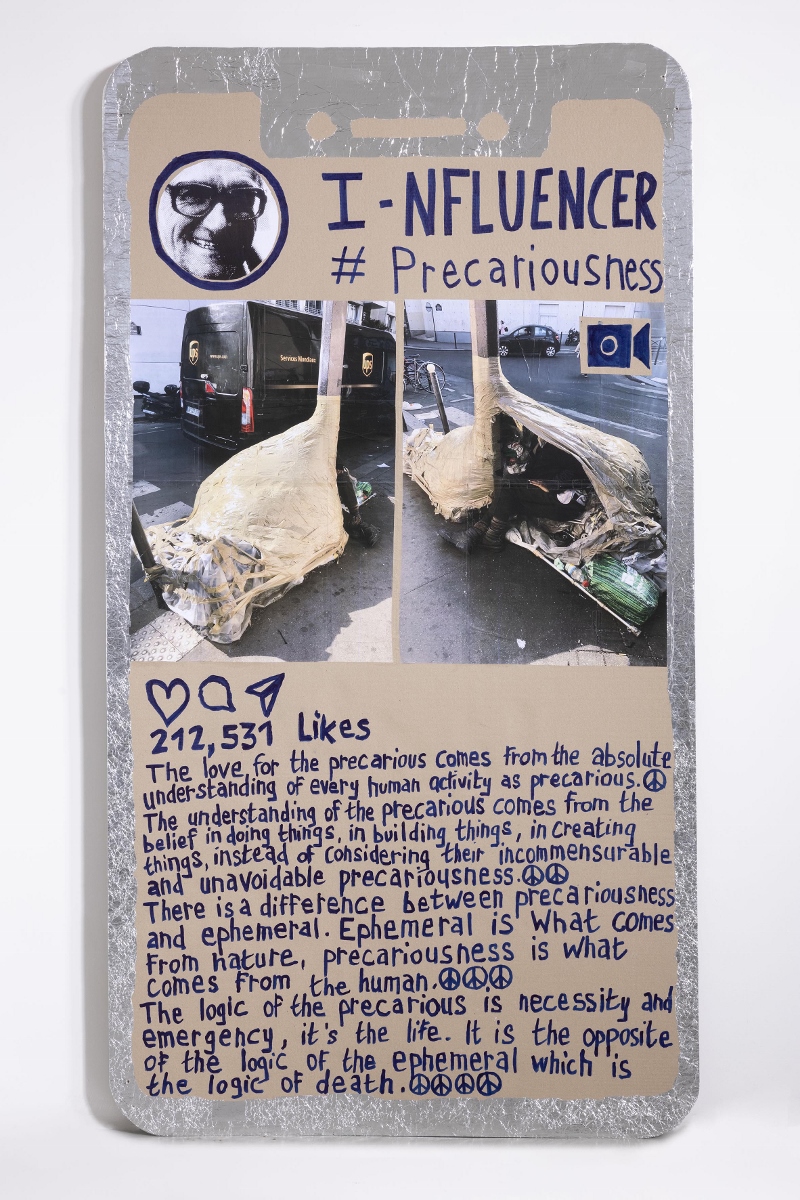 I-NFLUENCER
# Precariousness
ups
Services Mondiaux
ups
212,531 Likes
The love for the precarious comes from the absolute
understanding of every human activity as precarious.☮
The understanding of the precarious comes from the
belief in doing things, in building things, in creating
things, instead of considering their incommensurable
and unavoidable precariousness.☮☮
There is a difference between precariousness
and ephemeral. Ephemeral is what comes
from nature, precariousness is what
comes from the human.☮☮☮
The logic of the precarious is necessity and
emergency, it's the life. It is the opposite
of the logic of the ephemeral which is
the logic of death.☮☮☮☮